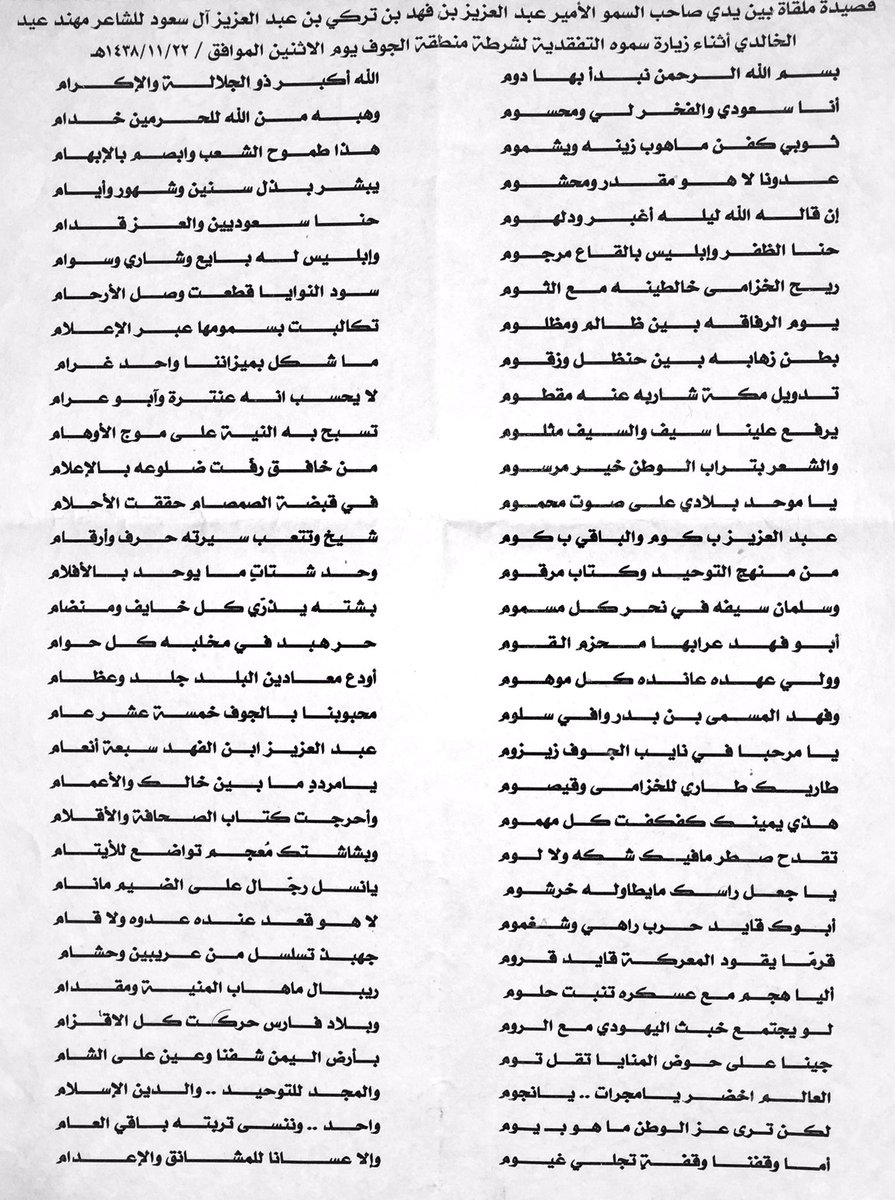 قصيدة ملقاة بين يدي صاحب السمو الأمير عبد العزيز بن فهد بن تركي بن عبد العزيز آل سعود للشاعر مهند عيد
الخالدي أثناء زيارة سموه التفقدية لشرطة منطقة الجوف يوم الاثنين الموافق / ١٤٣٨/١١/٢٢هـ
بسم الله الرحمن نبدأ بها دوم الله أكبر ذو الجلالة والإكرام
أنا سعودي والفخر لي ومحسوم وهبه من الله للحرمين خدام
ثوبي كفن ماهوب زينه ويشموم هذا طموح الشعب وابصم بالإبهام
عدونا لا هو مقدر ومحشوم يبشر بذل سنين وشهور وأيام
إن قاله الله ليله أغبر ودلهوم حنا سعوديين والعز قدام
حنا الظفر وإبليس بالقاع مرجوم وإبليس له بايع وشاري وسوام
ريح الخزامى خالطينه مع الثوم سود النوايا قطعت وصل الأرحام
يوم الرفاقه بين ظالم ومظلوم تكالبت بسمومها عبر الإعلام
بطن زهابه بين حنظل وزقوم ما شكل بميزاننا واحد غرام
تدويل مكة شاربه عنه مقطوم لا يحسب انه عنترة وآبو عرام
يرفع علينا سيف والسيف مثلوم تسبح به النية على موج الأوهام
والشعر بتراب الوطن خير مرسوم من خافق رفّت ضلوعه بالإعلام
يا موحد بلادي على صوت محموم في قبضة الصمصام حققت الأحلام
عبد العزيز ب كوم والباقي ب كوم شيخ وتتعب سيرته حرف وأرقام
من منهج التوحيد وكتاب مرقوم وحد شتاتِ ما يوحد بالأفلام
وسلمان سيفه في نحر كل مسموم بشته يذرّي كل خايف ومنضام
أبو فهد عرابها محزم القوم حر هبد في مخلبه كل حوام
وولي عهده عانده كل موهوم أودع معادين البلد جلد وعظام
وفهد المسمى بن بدر وافي سلوم محبوبنا بالجوف خمسة عشر عام
يا مرحبا في نايب الجوف زيزوم عبد العزيز ابن الفهد سبعة أنعام
طاريك طاري للخزامى وقيصوم يامرددِ ما بين خالك والأعمام
هذي يمينك كفكفت كل مهموم وأحرجت كتاب الصحافة والأقلام
تقدح صطر مافيك شكه ولا لوم وبشاشتك مُعجم تواضع للأيتام
يا جعل راسك مايطاوله خرشوم يانسل رجّال على الضيم مانام
أبوك قايد حرب راهي وشغموم لا هو قعد عنده عدوه ولا قام
قرمًا يقود المعركة قايد قروم جهبذ تسلسل من عريبين وحشام
أليا هجم مع عسكره تنبت حلوم ريبال ماهاب المنية ومقدام
لو يجتمع خبث اليهودي مع الروم وبلاد فارس حركت كل الاقزام
جينا على حوض المنايا تقل توم بأرض اليمن شفنا وعين على الشام
العالم اخضر يامجرات .. يانجوم والمجد للتوحيد .. والدين الإسلام
لكن ترى عز الوطن ما هو بـ يوم واحد .. وننسى تربته باقي العام
أما وقفتنا وقفة تجلي غيوم وإلا عسانا للمشانق والإعدام